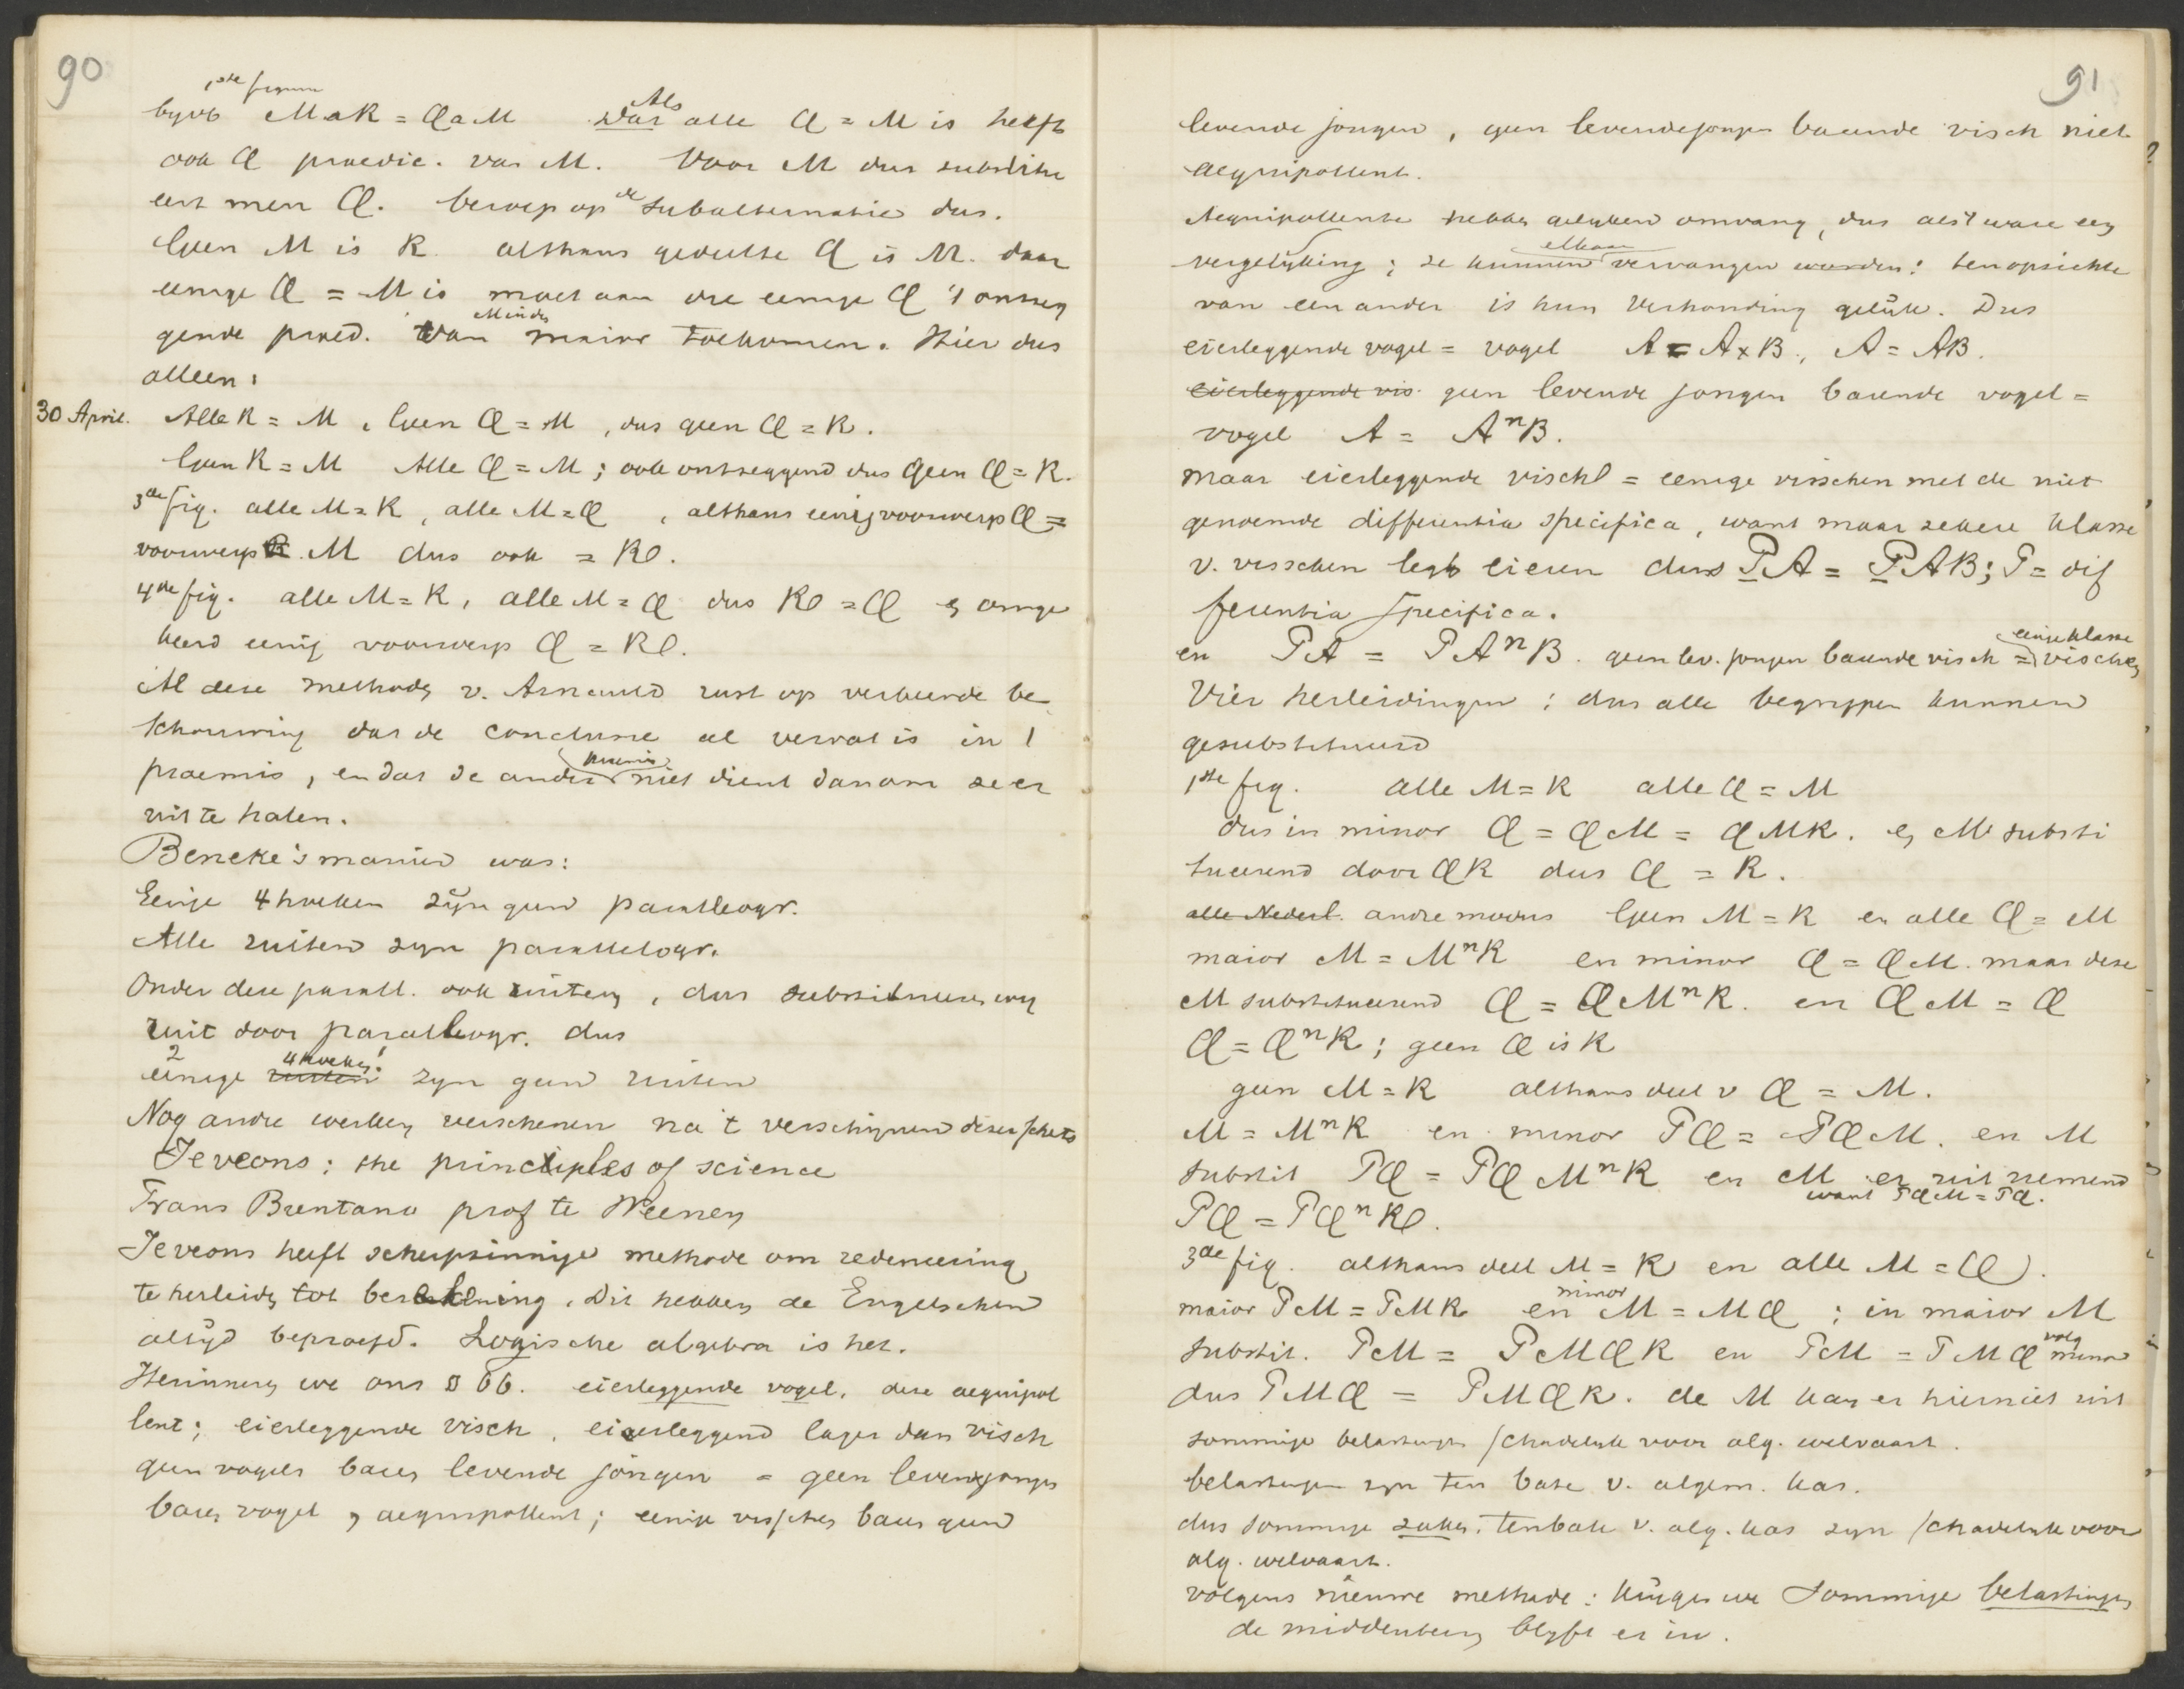 90
1ste figuur
byvb MaR = QaM Als alle Q = M is heeft
ook Q praedic. van M. Voor M dus substitu
eert men Q. beroep op de subalternatie dus.
Geen M is R. althans gedeelte Q is M. daar
eenige Q = M is moet aan die eenige Q 't ontzeg
gende praed. van Minder maior toekomen. Hier dus
alleen:
30 April. Alle R = M, Geen Q = M, dus geen Q = R.
Geen R = M Alle Q = M; ook ontzeggend dus Geen Q = R.
3de fig. alle M = R, alle M = Q, althans eenig voorwerp Q =
voorwerp M dus ook = R.
4de fig. alle M = R, alle M = Q dus R = Q en omge
keerd eenig voorwerp Q = R.
Al deze methodes v. Arnauld rust op verkeerde be
schouwing dat de conclusie al vervat is in 1
praemis, en dat de andere praemis niet dient dan om ze er
uit te halen.
Beneke's manier was:
Eenige 4hoeken zijn geen parallelogr.
Alle ruiten zyn parallelogr.
Onder deze parall. ook ruiten, dus substitueeren wy
ruit door parallelogr. dus
2 eenige 4hoeken! zyn geen ruiten
Nog andre werken verschenen na 't verschynen dezer schets
Jeveons: the principles of science
Frans Brentano prof te Weenen
Jeveons heeft scherpzinnige methode om redeneering
te herleiden tot berekening. Dit hebben de Engelschen
altijd beproefd. Logische algebra is het.
Herinneren we ons § 66. eierleggende vogel, deze aequipol
lent; eierleggende visch, eierleggend lager dan visch
geen vogels baren levende jongen = geen levende jongen
baren vogel, aequipollent; eenige visschen baren geen
91
levende jongen, geen levende jongen barende visch niet
aequipollent.
Aequipollente hebben gelyken omvang, dus als 't ware een
vergelyking; ze kunnen elkaar vervangen worden: ten opzichte
van een ander is hun verhouding gelijk. Dus
eierleggende vogel = vogel A = A x B, A = AB.
eierleggende vis geen levende jongen barende vogel =
vogel A = AⁿB.
maar eierleggende visch = eenige visschen met de niet
genoemde differentia specifica, want maar zekere klasse
v. visschen legt eieren dus PA = PAB; P = dif
ferentia specifica.
en PA = PAⁿB. geen lev. jongen barende visch = eenige klasse visschen
Vier herleidingen: dus alle begrippen kunnen
gesubstitueerd
1ste fig. alle M = R alle Q = M
dus in minor Q = QM = QMR. en M substi
tueerend door QR dus Q = R.
alle Nederl. andre modus Geen M = R en alle Q = M
maior M = MⁿR en minor Q = QM. maar deze
M substitueerend Q = QMⁿR. en QM = Q
Q = QⁿR; geen Q is R
geen M = R althans deel v Q = M.
M = MⁿR en minor PQ = PQM. en M
substit PQ = PQMⁿR en M er uit nemend
want PQM = PQ.
PQ = PQⁿR.
3de fig. althans deel M = R en alle M = Q.
maior PM = PMR en minor M = MQ; in maior M
substit. PM = PMQR en PM = PMQ volg minor
dus PMQ = PMQR. de M kan er hier niet uit
sommige belastingen schadelyk voor alg. welvaart.
belastingen zyn ten bate v. algem. kas.
dus sommige zaken, ten bate v. alg. kas zyn schadelyk voor
alg. welvaart.
volgens nieuwe methode: krijgen we Sommige belastingen
de middenterm blyft er in.